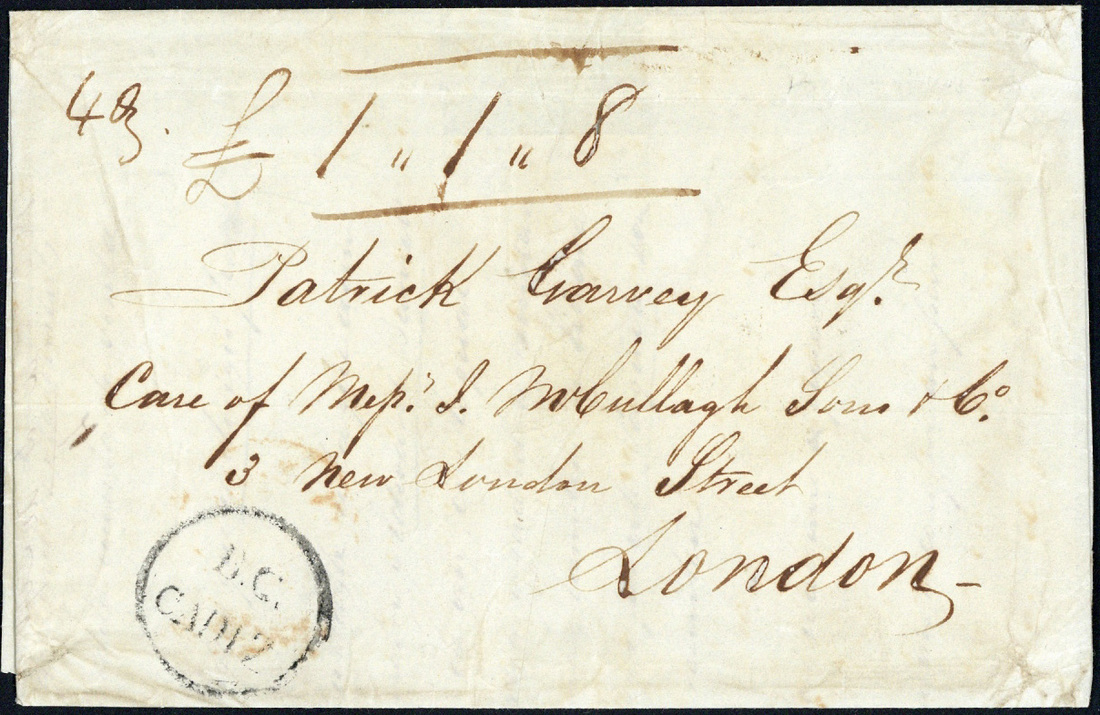 4 oz. £ 1 " 1 " 8
Patrick Garvey Esqr.
Care of Messrs. J. McCullagh Sons & Co.
3 New London Street
London
B.C.
CADIZ